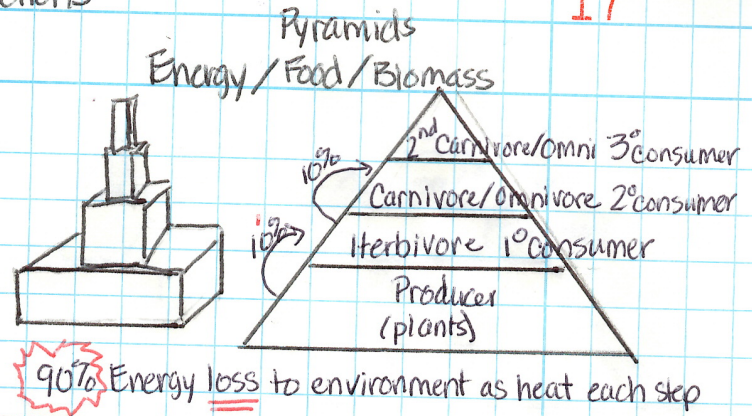 17
Pyramids
Energy/Food/Biomass
2nd Carnivore/Omni 3° consumer
10%
Carnivore/Omnivore 2° consumer
10%
Herbivore 1° consumer
Producer
(plants)
90% Energy loss to environment as heat each step